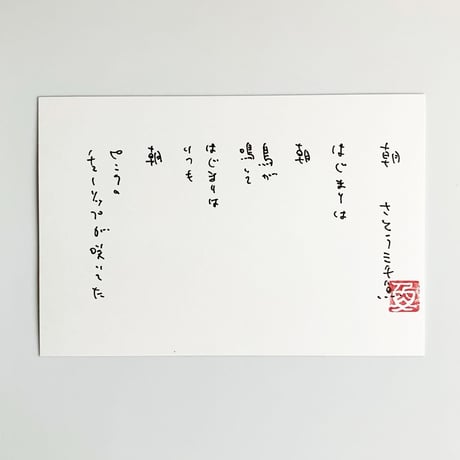 朝　さとう三千魚
はじまりは
朝
鳥が
鳴いて
はじまりは
いつも
朝
ピンクの
チューリップが咲いてた